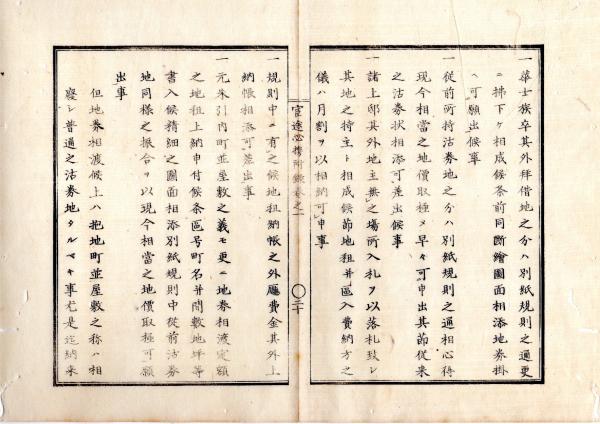 一華士族卒其外拜借地之分ハ別紙規則之通更
ニ拂下ケ相成候条前同斷繪圖面相添地券掛
ヘ可願出候事
一從前所持沽券地之分ハ別紙規則之通相心得
現今相當之地價取極メ早々可申出其節従来
之沽券状相添可差出候事
一諸上邸其外地主無之場所入札ヲ以落札致シ
其地之持主ト相成候節地租并區入費納方之
儀ハ月割ヲ以相納可申事
官途必携附録巻之一
〇二十
一規則中ニ有之候地租納帳之外廳費金其外上
納帳相添可差出事
一元朱引内町並屋敷之義モ更ニ地券相渡定額
之地租上納申付候条區号町名并間數地坪等
書入候精細之圖面相添別紙規則中從前沽券
地同様之振合ヲ以現今相當之地價取極可願
出事
但地券相渡候上ハ抱地町並屋敷之称ハ相
廢シ普通之沽券地タルヘキ事尤是迄納来